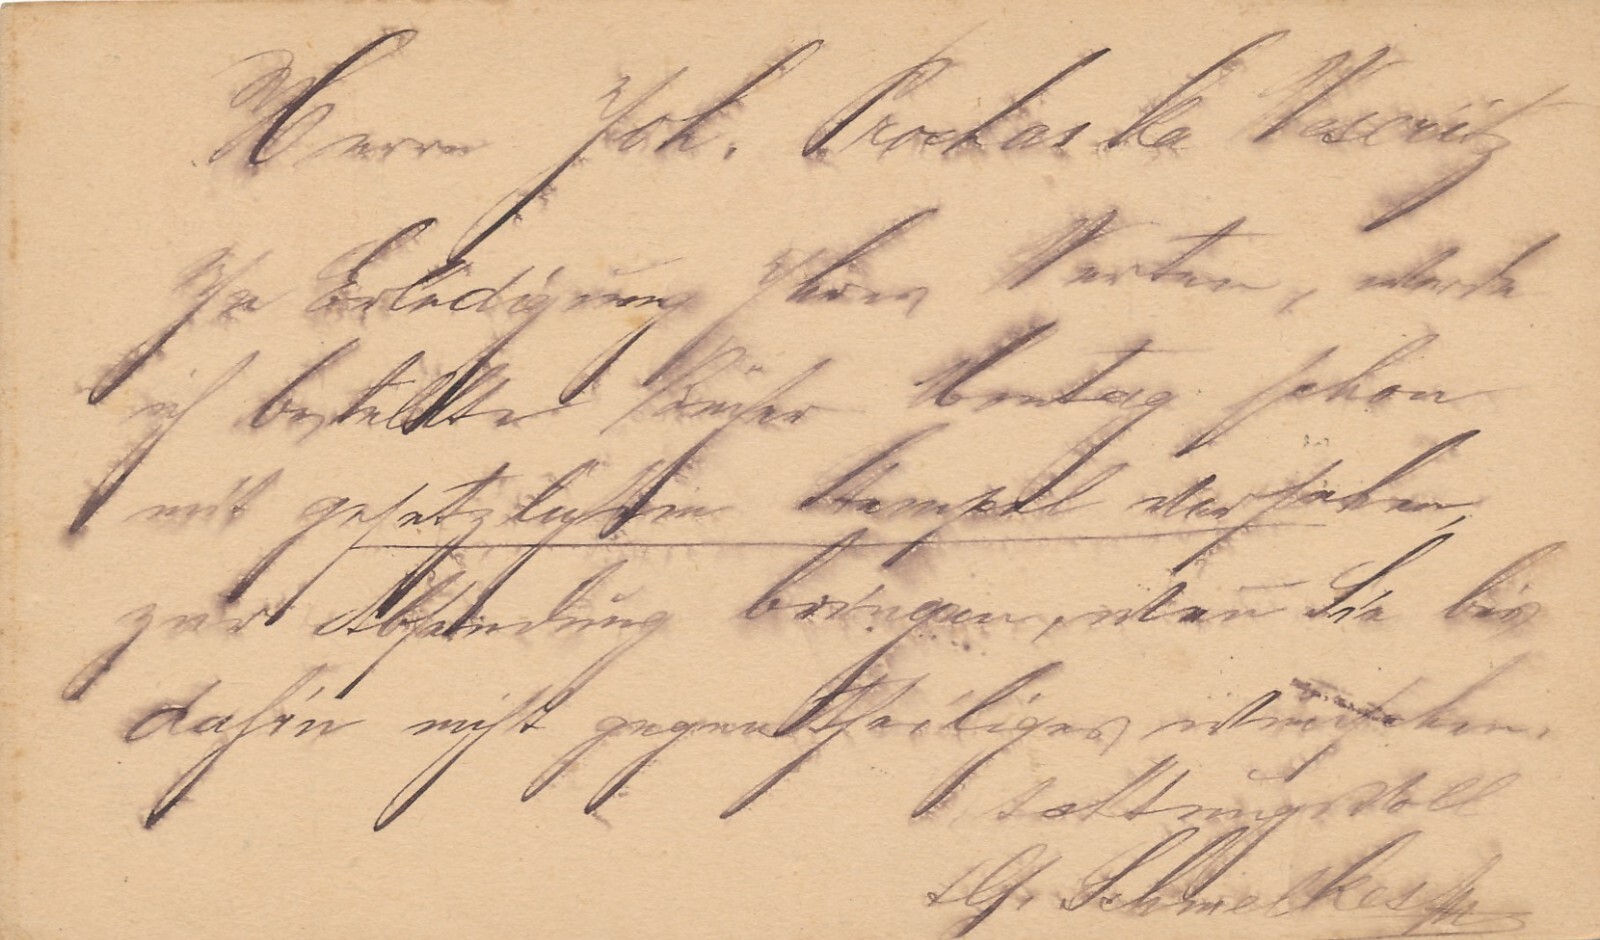 Herrn Joh. Prochaska
In Erledigung Ihres Werten, werde
ich bestellte Bücher Montag schon
mit gesetzlichem Stempel versehen,
zur Absendung bringen, wenn Sie bis
dahin nicht gegentheiliges wünschen.
achtungsvoll
Schmelkes